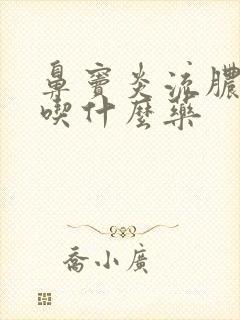 鼻竇炎流膿
喫什麼藥
喬小廣